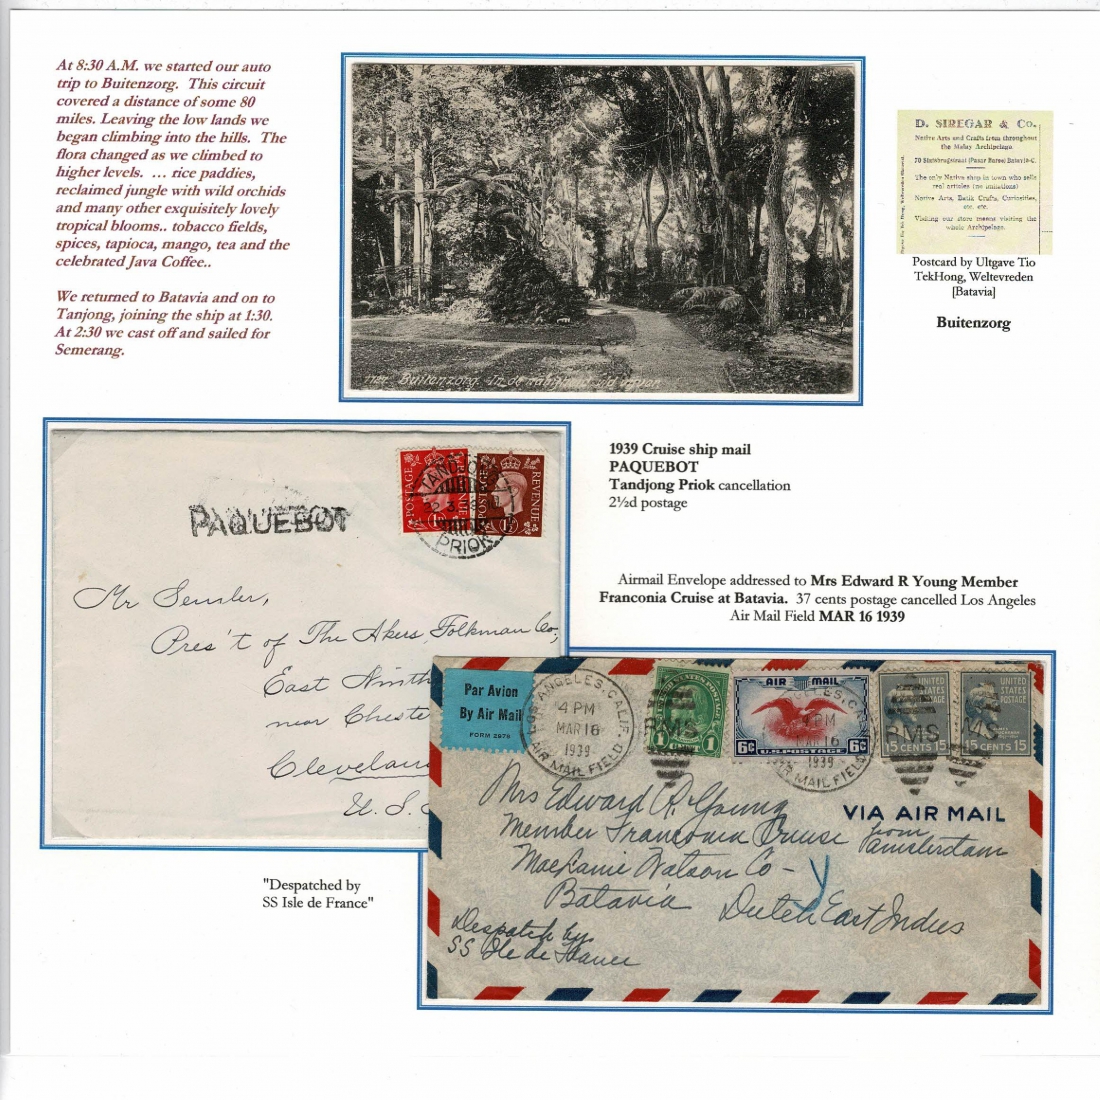 At 8:30 A.M. we started our auto
trip to Buitenzorg. This circuit
covered a distance of some 80
miles. Leaving the low lands we
began climbing into the hills. The
flora changed as we climbed to
higher levels. ... rice paddies,
reclaimed jungle with wild orchids
and many other exquisitely lovely
tropical blooms.. tobacco fields,
spices, tapioca, mango, tea and the
celebrated Java Coffee..
We returned to Batavia and on to
Tanjong, joining the ship at 1:30.
At 2:30 we cast off and sailed for
Semerang.
Buitenzorg. In de
D. SIREGAR & Co.
Native Arts and Crafts from throughout
the Malay Archipelago
70 (Pasar Baroe) Batavia-C.
The only Native shop in town who sells
real articles (no imitations)
Native Arts, Batik Crafts, Curiosities,
etc. etc.
Visiting our store means visiting the
whole Archipelago.
Postcard by Ultgave Tio
TekHong, Weltevreden
[Batavia]
Buitenzorg
1939 Cruise ship mail
PAQUEBOT
Tandjong Priok cancellation
2½d postage
POSTAGE
POSTAGE REVENUE
TANDJONG
PRIOK
PAQUEBOT
Mr Sensler,
Pres't of The Akers, Folkman Co;
East Ninth
near Chester
Cleveland
U. S.
Airmail Envelope addressed to Mrs Edward R Young Member
Franconia Cruise at Batavia. 37 cents postage cancelled Los Angeles
Air Mail Field MAR 16 1939
Par Avion
By Air Mail
FORM 2978
LOS ANGELES, CALIF.
4 PM
MAR 16
1939
AIR MAIL FIELD
1 1
RMS
AIR MAIL
6¢ U.S. POSTAGE 6¢
4 PM
MAR 16
1939
AIR MAIL FIELD
UNITED STATES POSTAGE
15 CENTS 15
RMS
UNITED STATES POSTAGE
15 CENTS 15
VIA AIR MAIL
Mrs Edward R. Young
Member Franconia Cruise from Amsterdam
MacKanie Watson Co -
Batavia Dutch East Indies
Despatch by
SS Ile de France
"Despatched by
SS Isle de France"